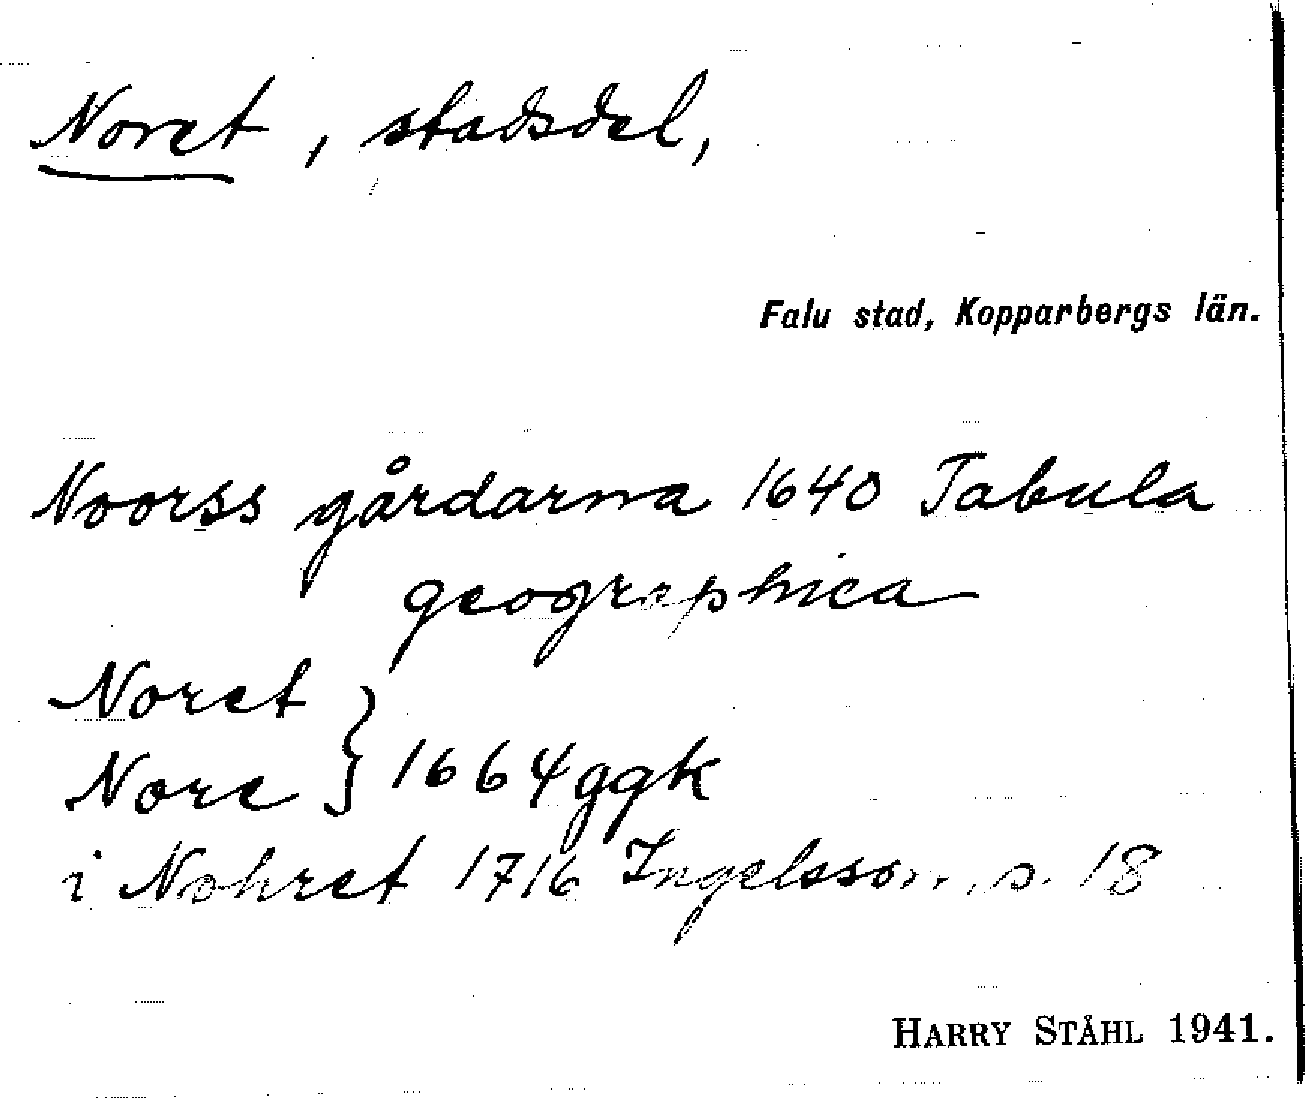 Noret, stadsdel,
Falu stad, Kopparbergs län.
Noorss gårdarna 1640 Tabula
geographica
Noret
Nore } 1664 ggk
i Nohret 1716 Ingelsson, s. 18
HARRY STÅHL 1941.